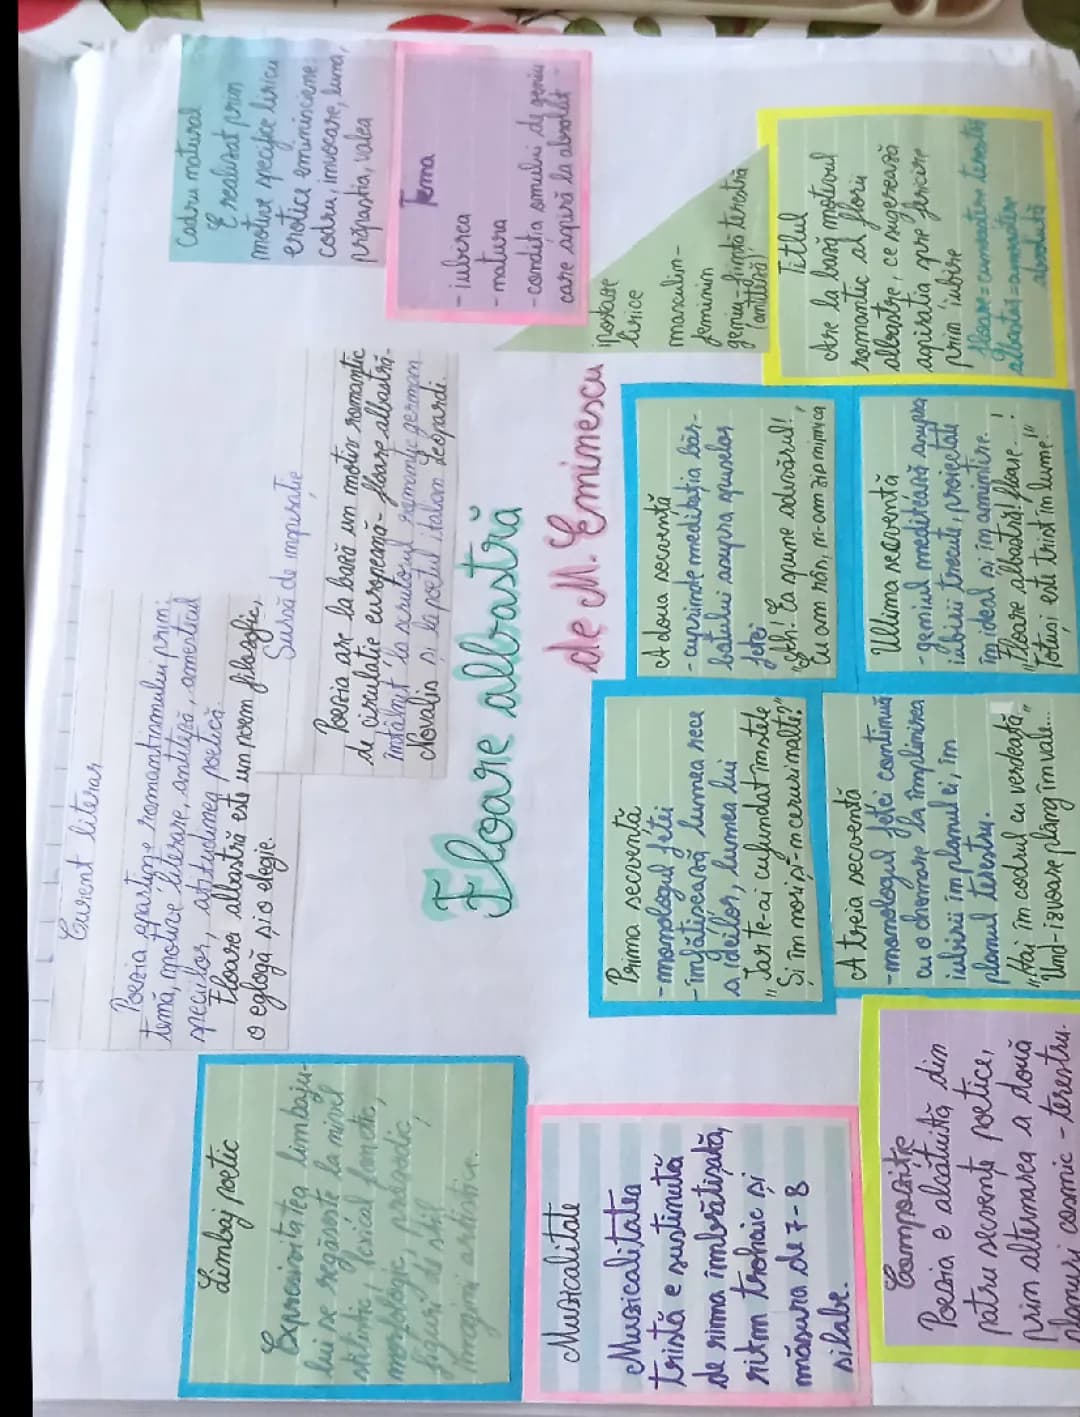 Curent literar
Poezia aparține romantismului prin:
temă, motive literare, antiteză, amestecul
speciilor, atitudinea poetică.
Floare albastră este un poem filosofic,
o eglogă și o elegie.
Sursă de inspirație
Poezia are la bază un motiv romantic
de circulație europeană - floare albastră-
întâlnit la scriitorul romantic german
Novalis și la poetul italian Leopardi.
Cadru natural
E realizat prin
motive specifice liricii
erotice eminesciene:
codru, izvoare, luna,
prăpastia, valea
Tema
- iubirea
- natura
- condiția omului de geniu
care aspiră la absolut
Floare albastră
de M. Eminescu
ipostaze
lirice
masculin-
feminin
geniu-ființă terestră
(antiteză)
Titlul
Are la bază motivul
romantic al florii
albastre, ce sugerează
aspirația spre fericire
prin iubire
floare = cunoaștere terestră
albastră = cunoaștere
absolută
Limbaj poetic
Expresivitatea limbaju-
lui se regăsește la nivel
stilistic, lexical, fonetic,
morfologic, prozodic,
figuri de stil,
imagini artistice.
Musicalitate
Musicalitatea
tristă e susținută
de rima îmbrățișată,
ritm trohaic și
măsura de 7-8
silabe.
Compoziție
Poezia e alcătuită din
patru secvențe poetice,
prin alternarea a două
planuri cosmic - terestru.
Prima secvență
- monologul fetei
- înfățișează lumea rece
a ideilor, lumea lui
"Iar te-ai cufundat în stele
Și în nori și-n ceruri nalte?"
A doua secvență
- cuprinde meditația băr-
batului asupra spuselor
fetei
"Ah! Ea spune adevărul!
Eu am râs, n-am zis nimica"
A treia secvență
- monologul fetei continuă
cu o chemare la împlinirea
iubirii în planul ei, în
planul terestru.
"Hai în codrul cu verdeață,"
Und-izvoare plâng în vale...
Ultima secvență
- geniul meditează asupra
iubirii trecute, proiectate
în ideal și în amintire.
"Floare albastră! floare...!
Totuși, este trist în lume!"